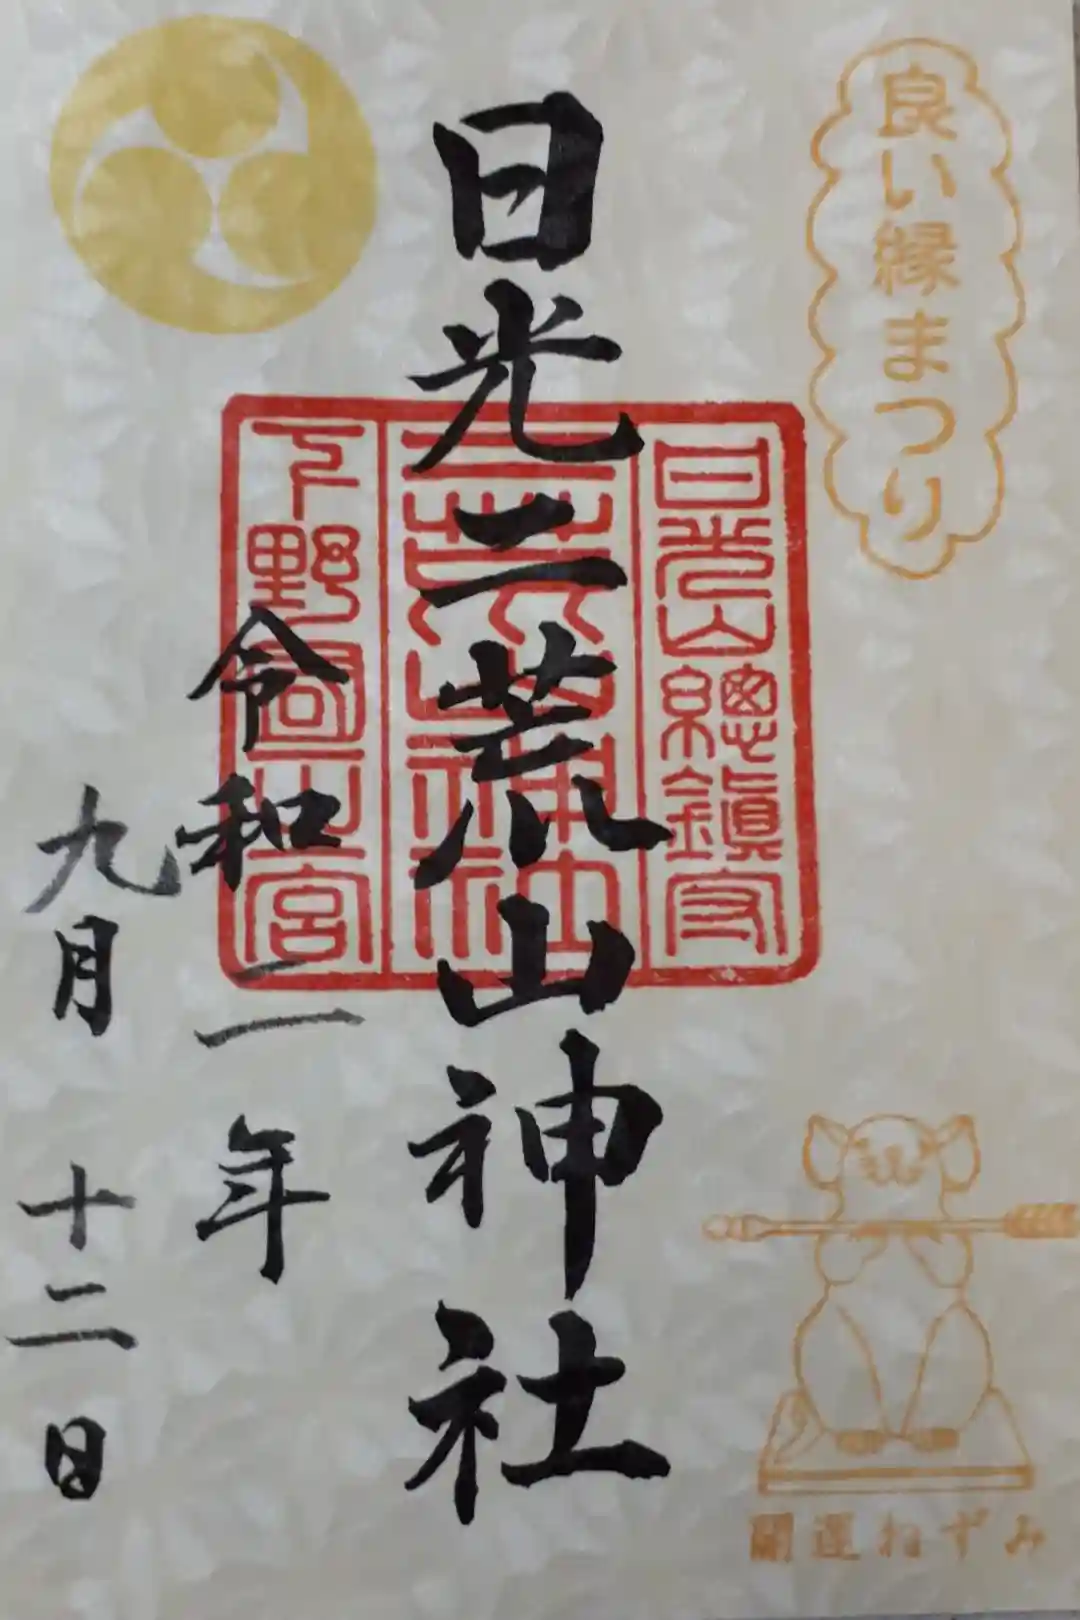 良い縁まつり
日光山總鎮守
二荒山神社
下野國一宮
日光二荒山神社
令和二年
九月十二日
開運ねずみ